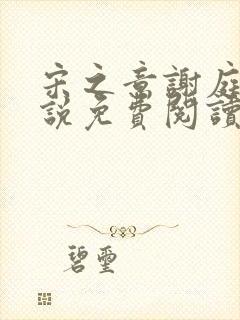 宋之章謝庭
說免費閱讀
碧璽